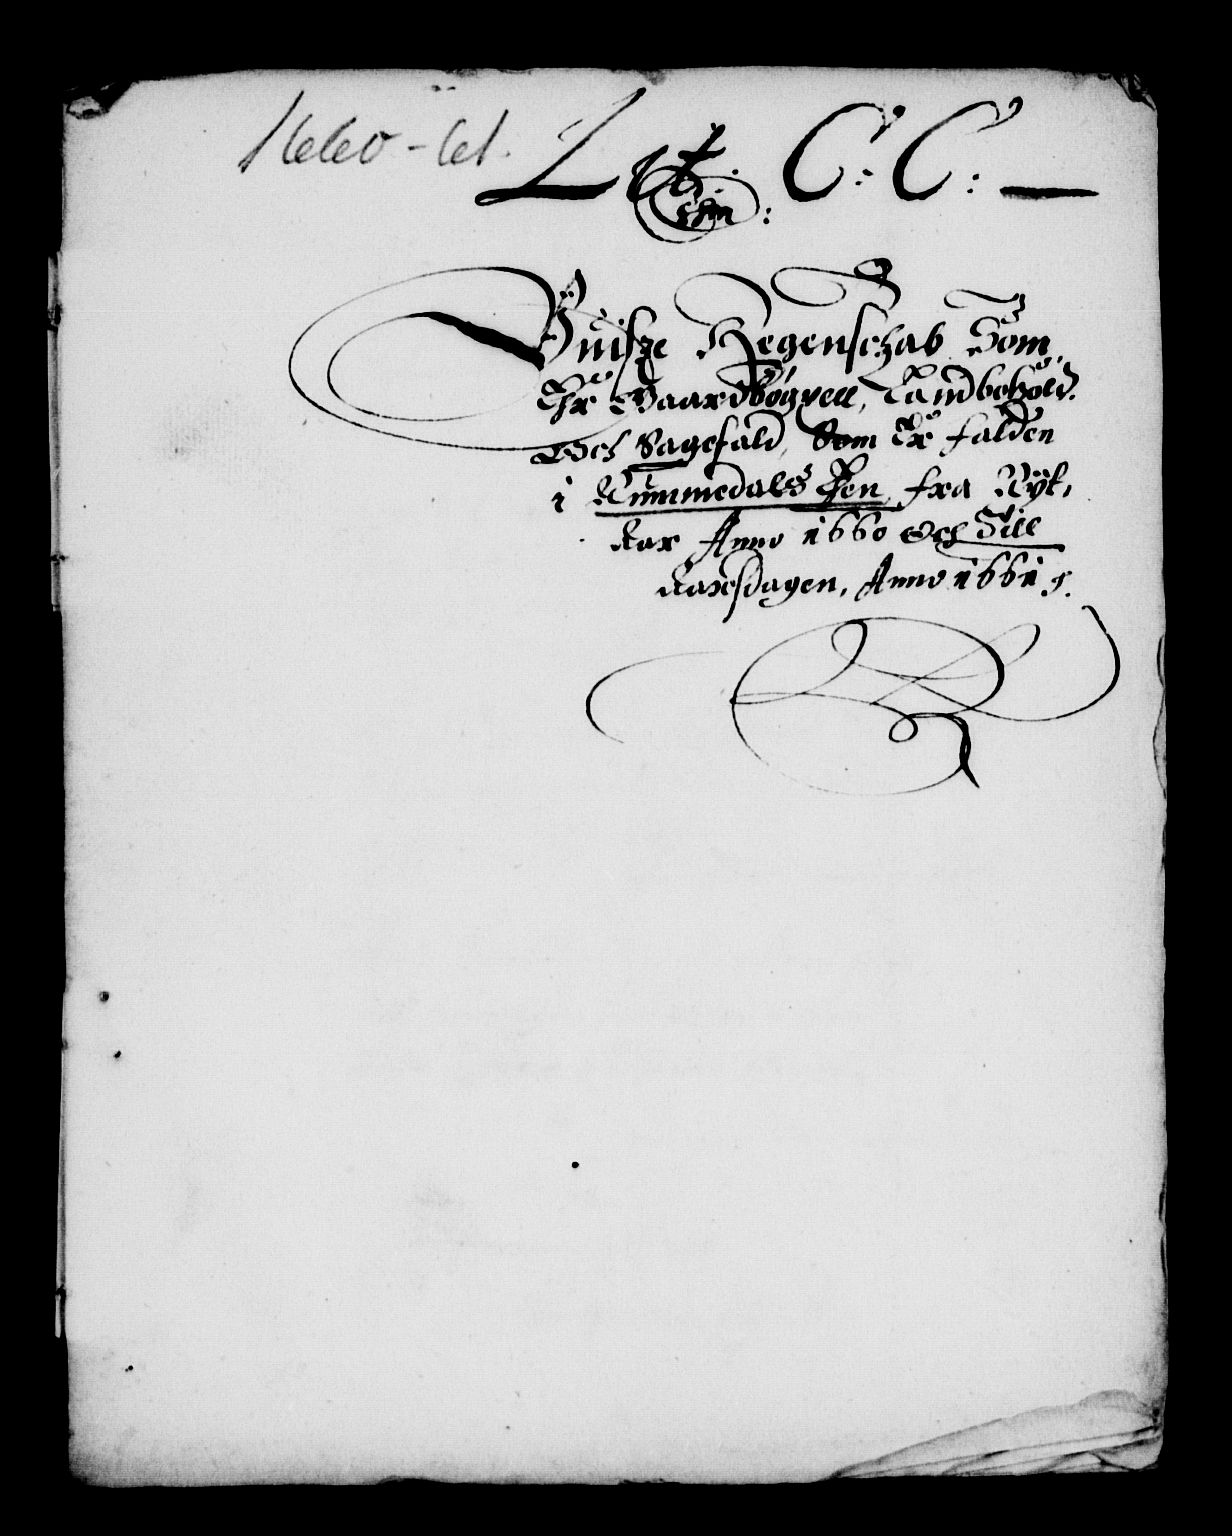 1660-61. Lit. C: C:
Wiisze Regenschab Som
Ehr Waardbøgxell, Landbohold
Och Sagefald, Som Er falden
i Nummedals Len, fra Nyt,
Aar Anno 1660 Och Till
Aaresdagen, Anno 1661